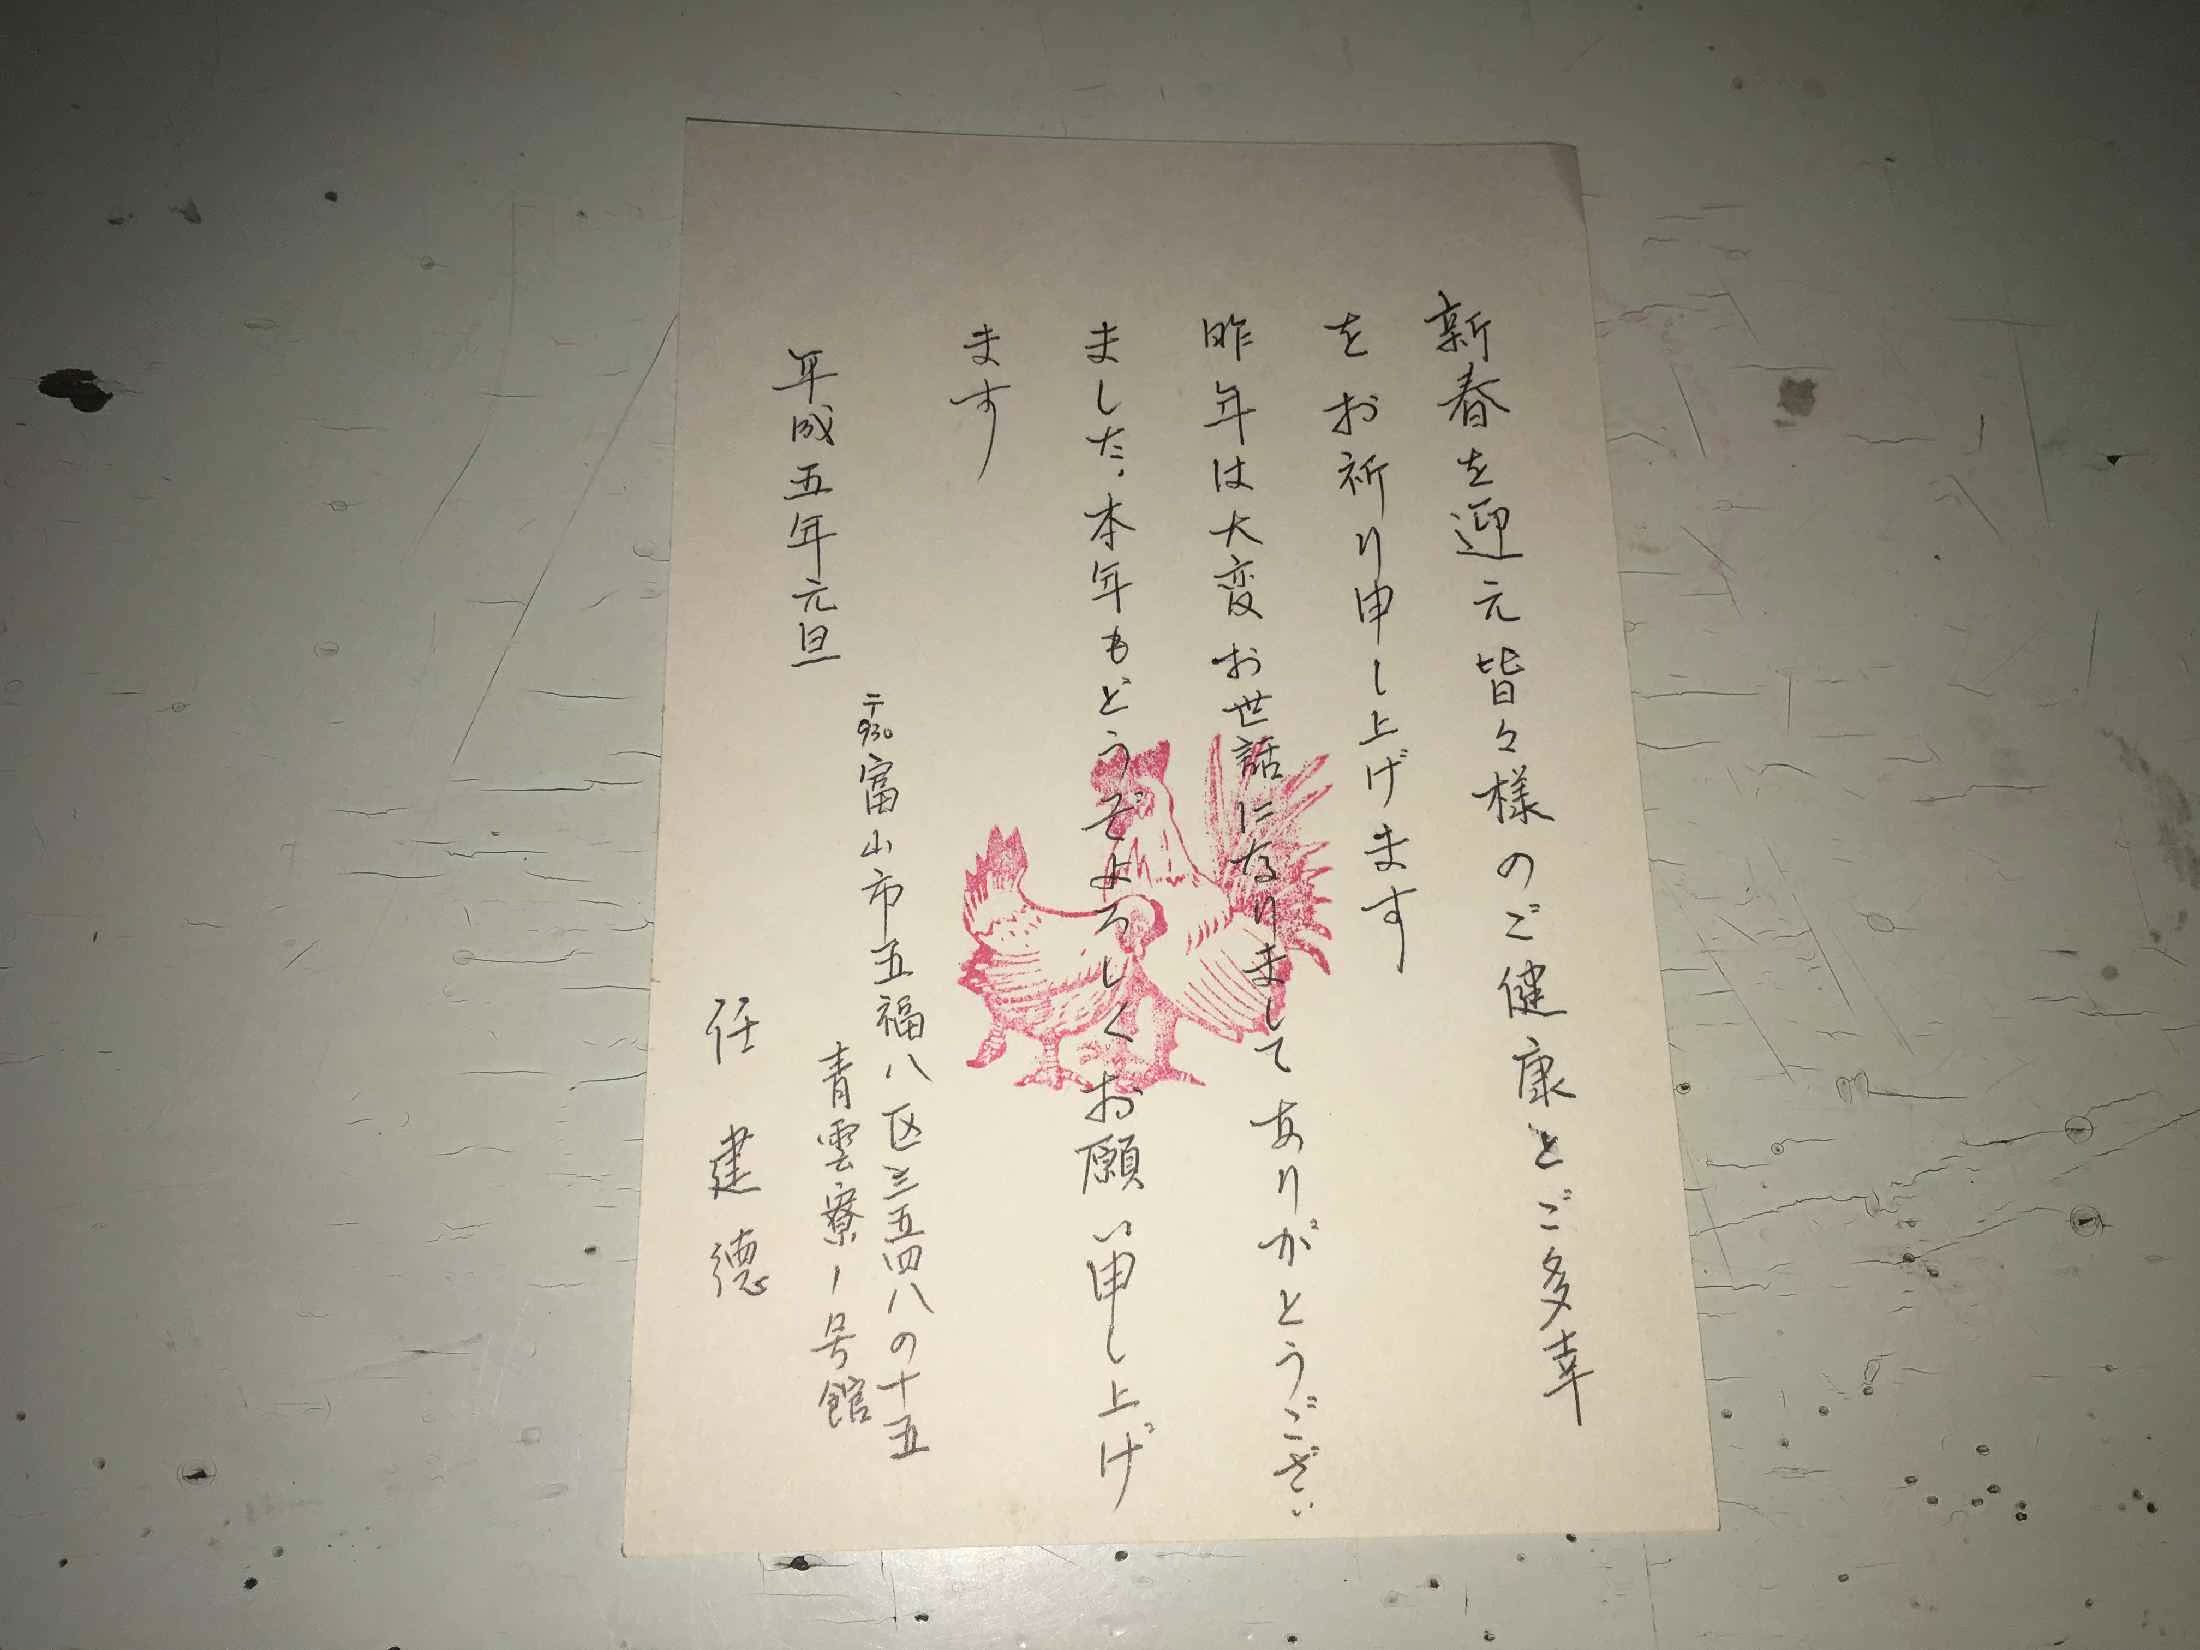 新春を迎元皆々様のご健康とご多幸
をお祈り申し上げます
昨年は大変お世話になりまして ありがとうござい
ました。本年もどうぞよろしく お願い申し上げ
ます
平成五年元旦
〒930 富山市五福八区三五四八の十五
青雲寮1号館
任建德